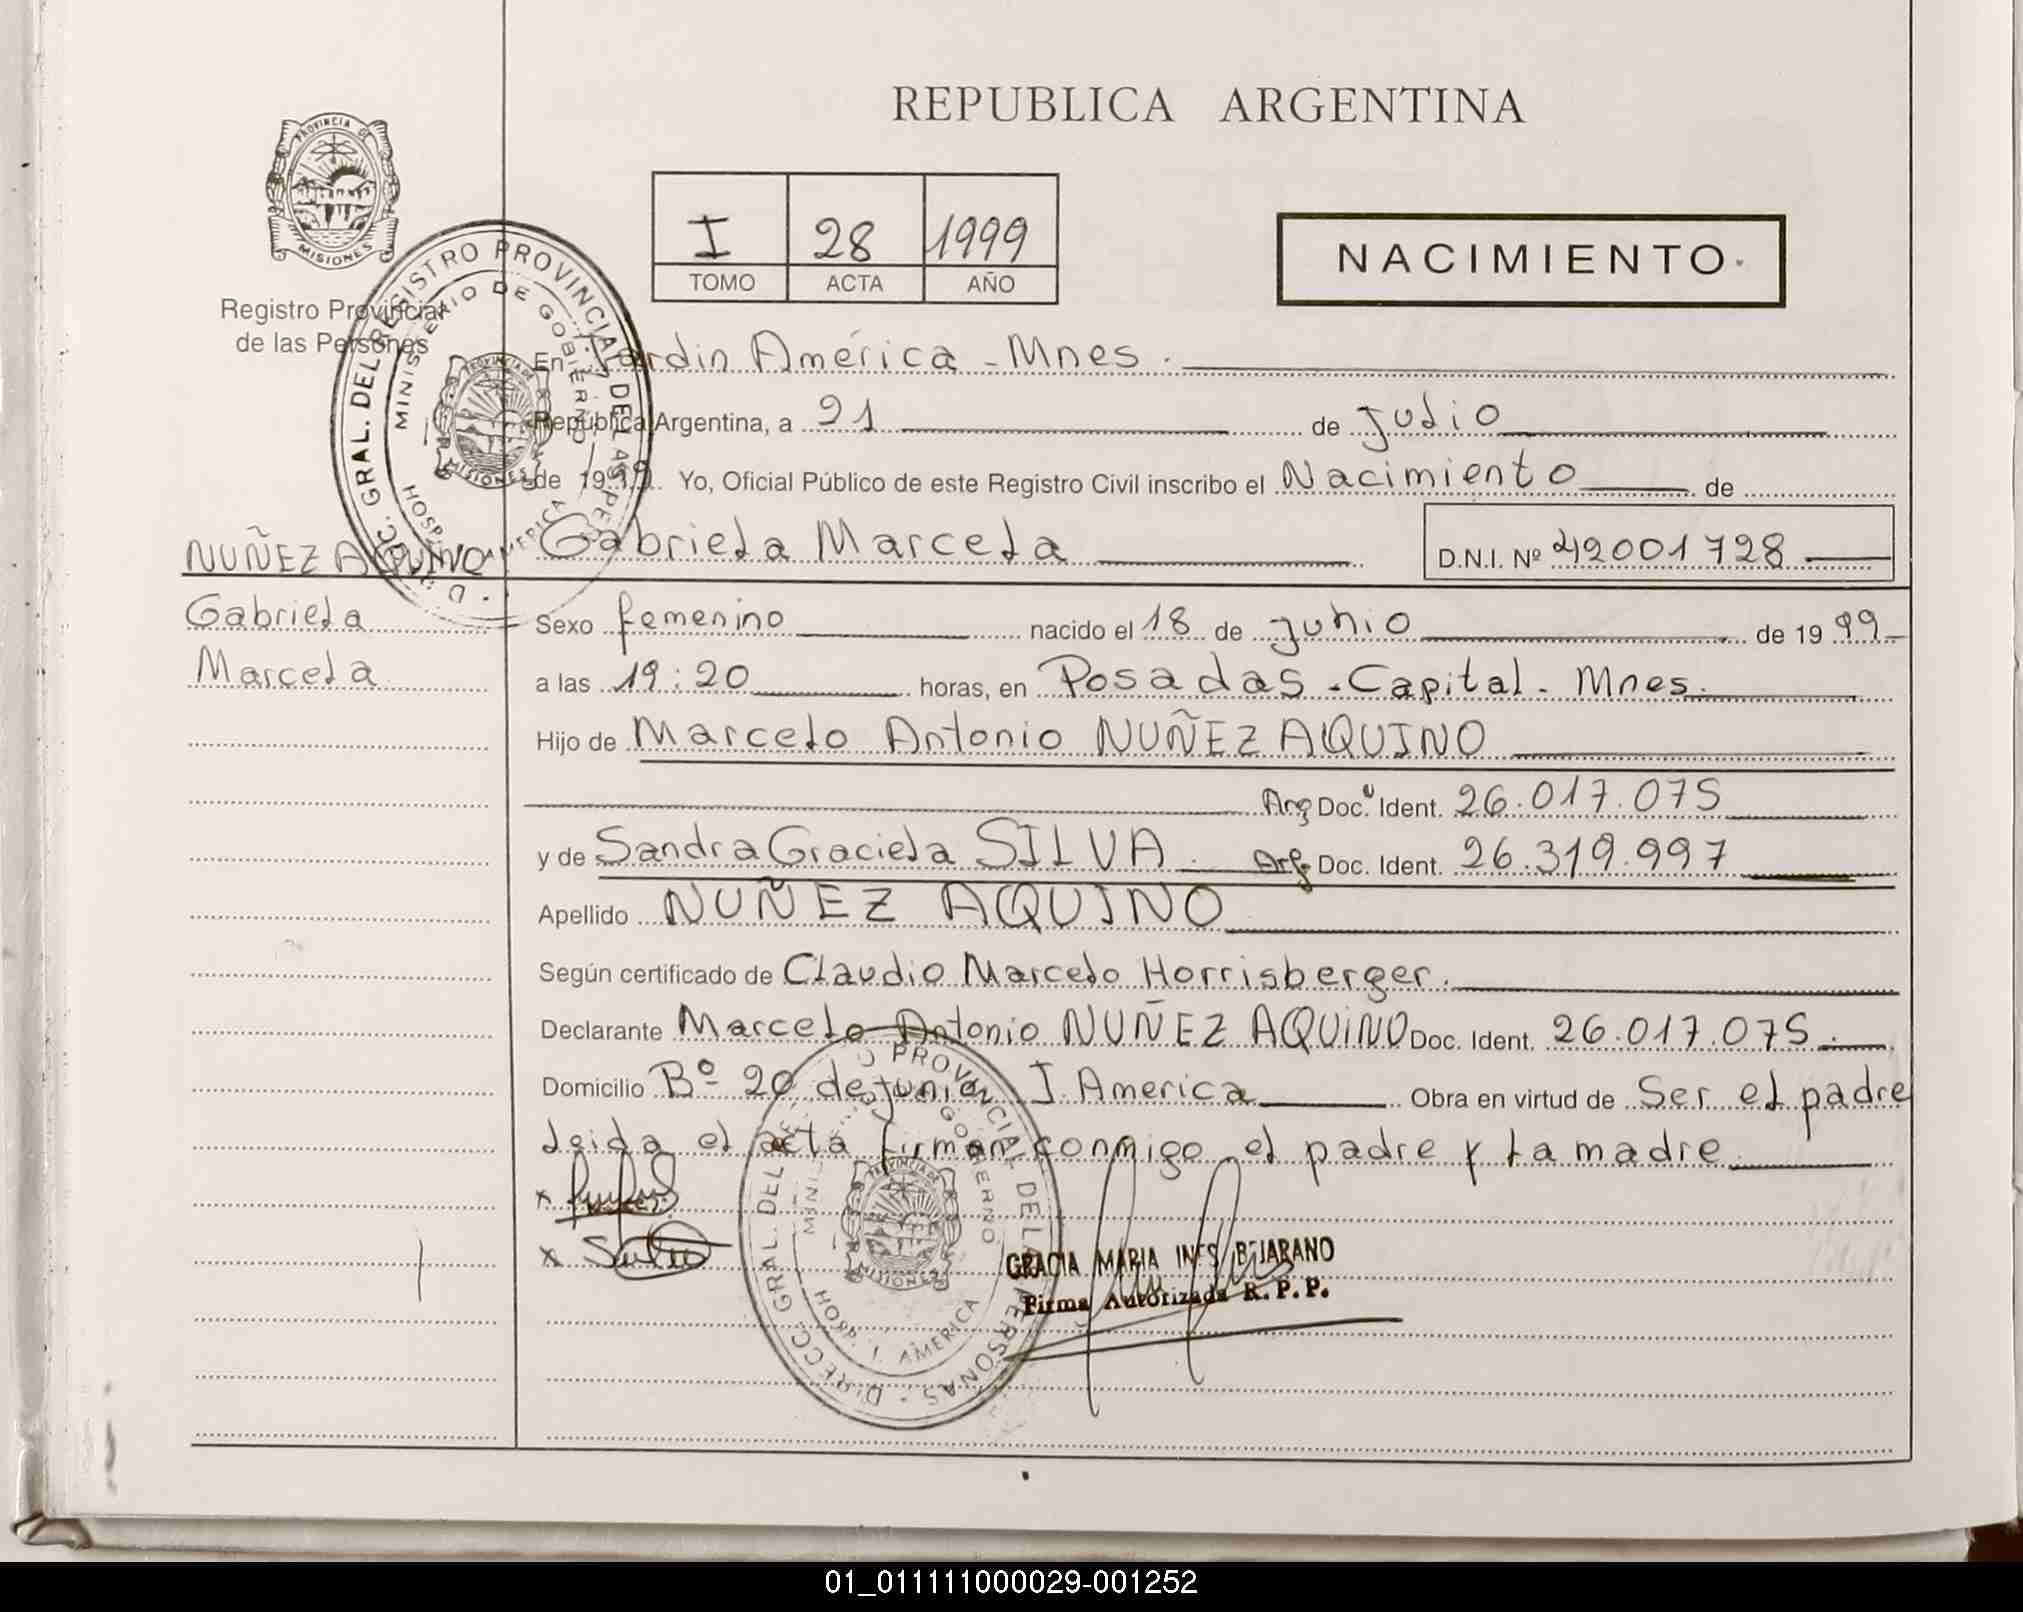 REPUBLICA ARGENTINA
PROVINCIA DE
MISIONES
Registro Provincial
de las Personas
I 28 1999
TOMO ACTA AÑO
NACIMIENTO
DIREC. GRAL. DEL REGISTRO PROVINCIAL DE LAS PERSONAS
MINISTERIO DE GOBIERNO
PROVINCIA DE
MISIONES
HOSP. AMERICA
En Jardin América - Mnes.
República Argentina, a 21 de Julio
de 1999. Yo, Oficial Público de este Registro Civil inscribo el Nacimiento de
NUÑEZ AQUINO
Gabriela Marcela
D.N.I. Nº 42001728
Gabriela
Marcela
Sexo femenino nacido el 18 de junio de 19 99
a las 19:20 horas, en Posadas - Capital - Mnes.
Hijo de Marcelo Antonio NUÑEZ AQUINO
Arg Doc. Ident. 26.017.075
y de Sandra Graciela SILVA Arg. Doc. Ident. 26.319.997
Apellido NUÑEZ AQUINO
Según certificado de Claudio Marcelo Horrisberger.
Declarante Marcelo Antonio NUÑEZ AQUINO Doc. Ident. 26.017.075.
Domicilio Bº 20 de junio J. America Obra en virtud de Ser el padre
leida el acta firman conmigo el padre y la madre
DIRECC. GRAL. DEL PROVINCIAL DE LAS PERSONAS
GOBIERNO
PROVINCIA DE
MISIONES
HOSP. J. AMERICA
GRACIA MARIA INES BEJARANO
Firma Autorizada R.P.P.
01_011111000029-001252